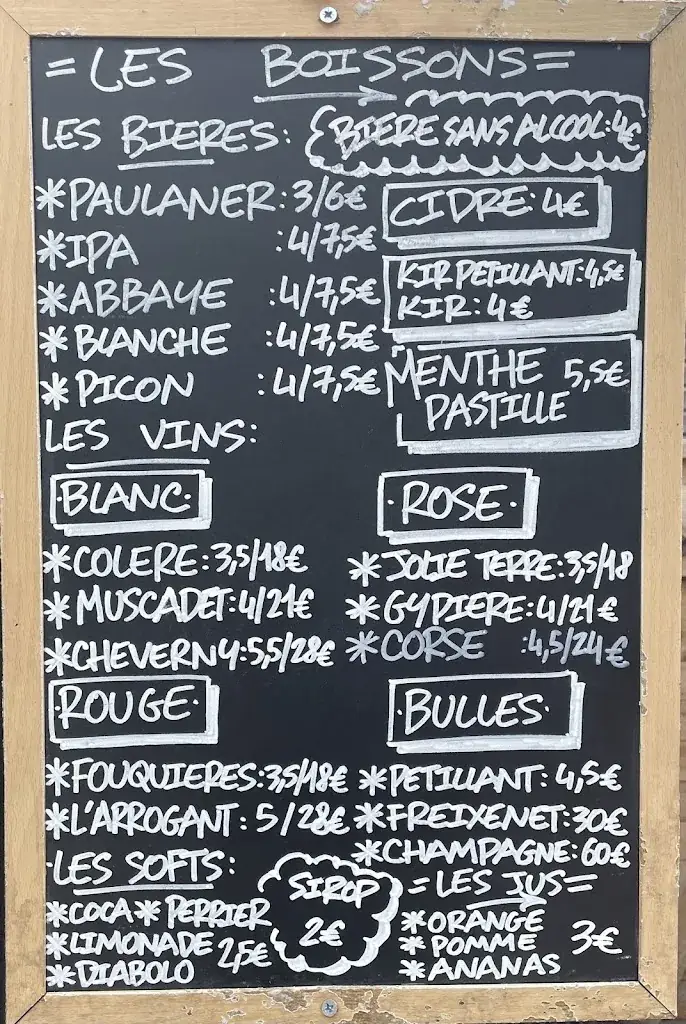 =LES BOISSONS=
LES BIERES:
BIERE SANS ALCOOL:4€
*PAULANER:3/6€
*IPA :4/7,5€
*ABBAYE :4/7,5€
*BLANCHE :4/7,5€
*PICON :4/7,5€
CIDRE:4€
KIR PETILLANT:4,5€
KIR:4€
MENTHE PASTILLE 5,5€
LES VINS:
·BLANC·
*COLERE:3,5/18€
*MUSCADET:4/21€
*CHEVERNY:5,5/28€
·ROSE·
*JOLIE TERRE:3,5/18
*GYPIERE:4/21€
*CORSE :4,5/24€
·ROUGE·
*FOUQUIERES:3,5/18€
*L'ARROGANT:5/28€
·BULLES·
*PETILLANT:4,5€
*FREIXENET:30€
*CHAMPAGNE:60€
LES SOFTS:
*COCA *PERRIER
*LIMONADE 2,5€
*DIABOLO
SIROP
2€
=LES JUS=
*ORANGE
*POMME 3€
*ANANAS